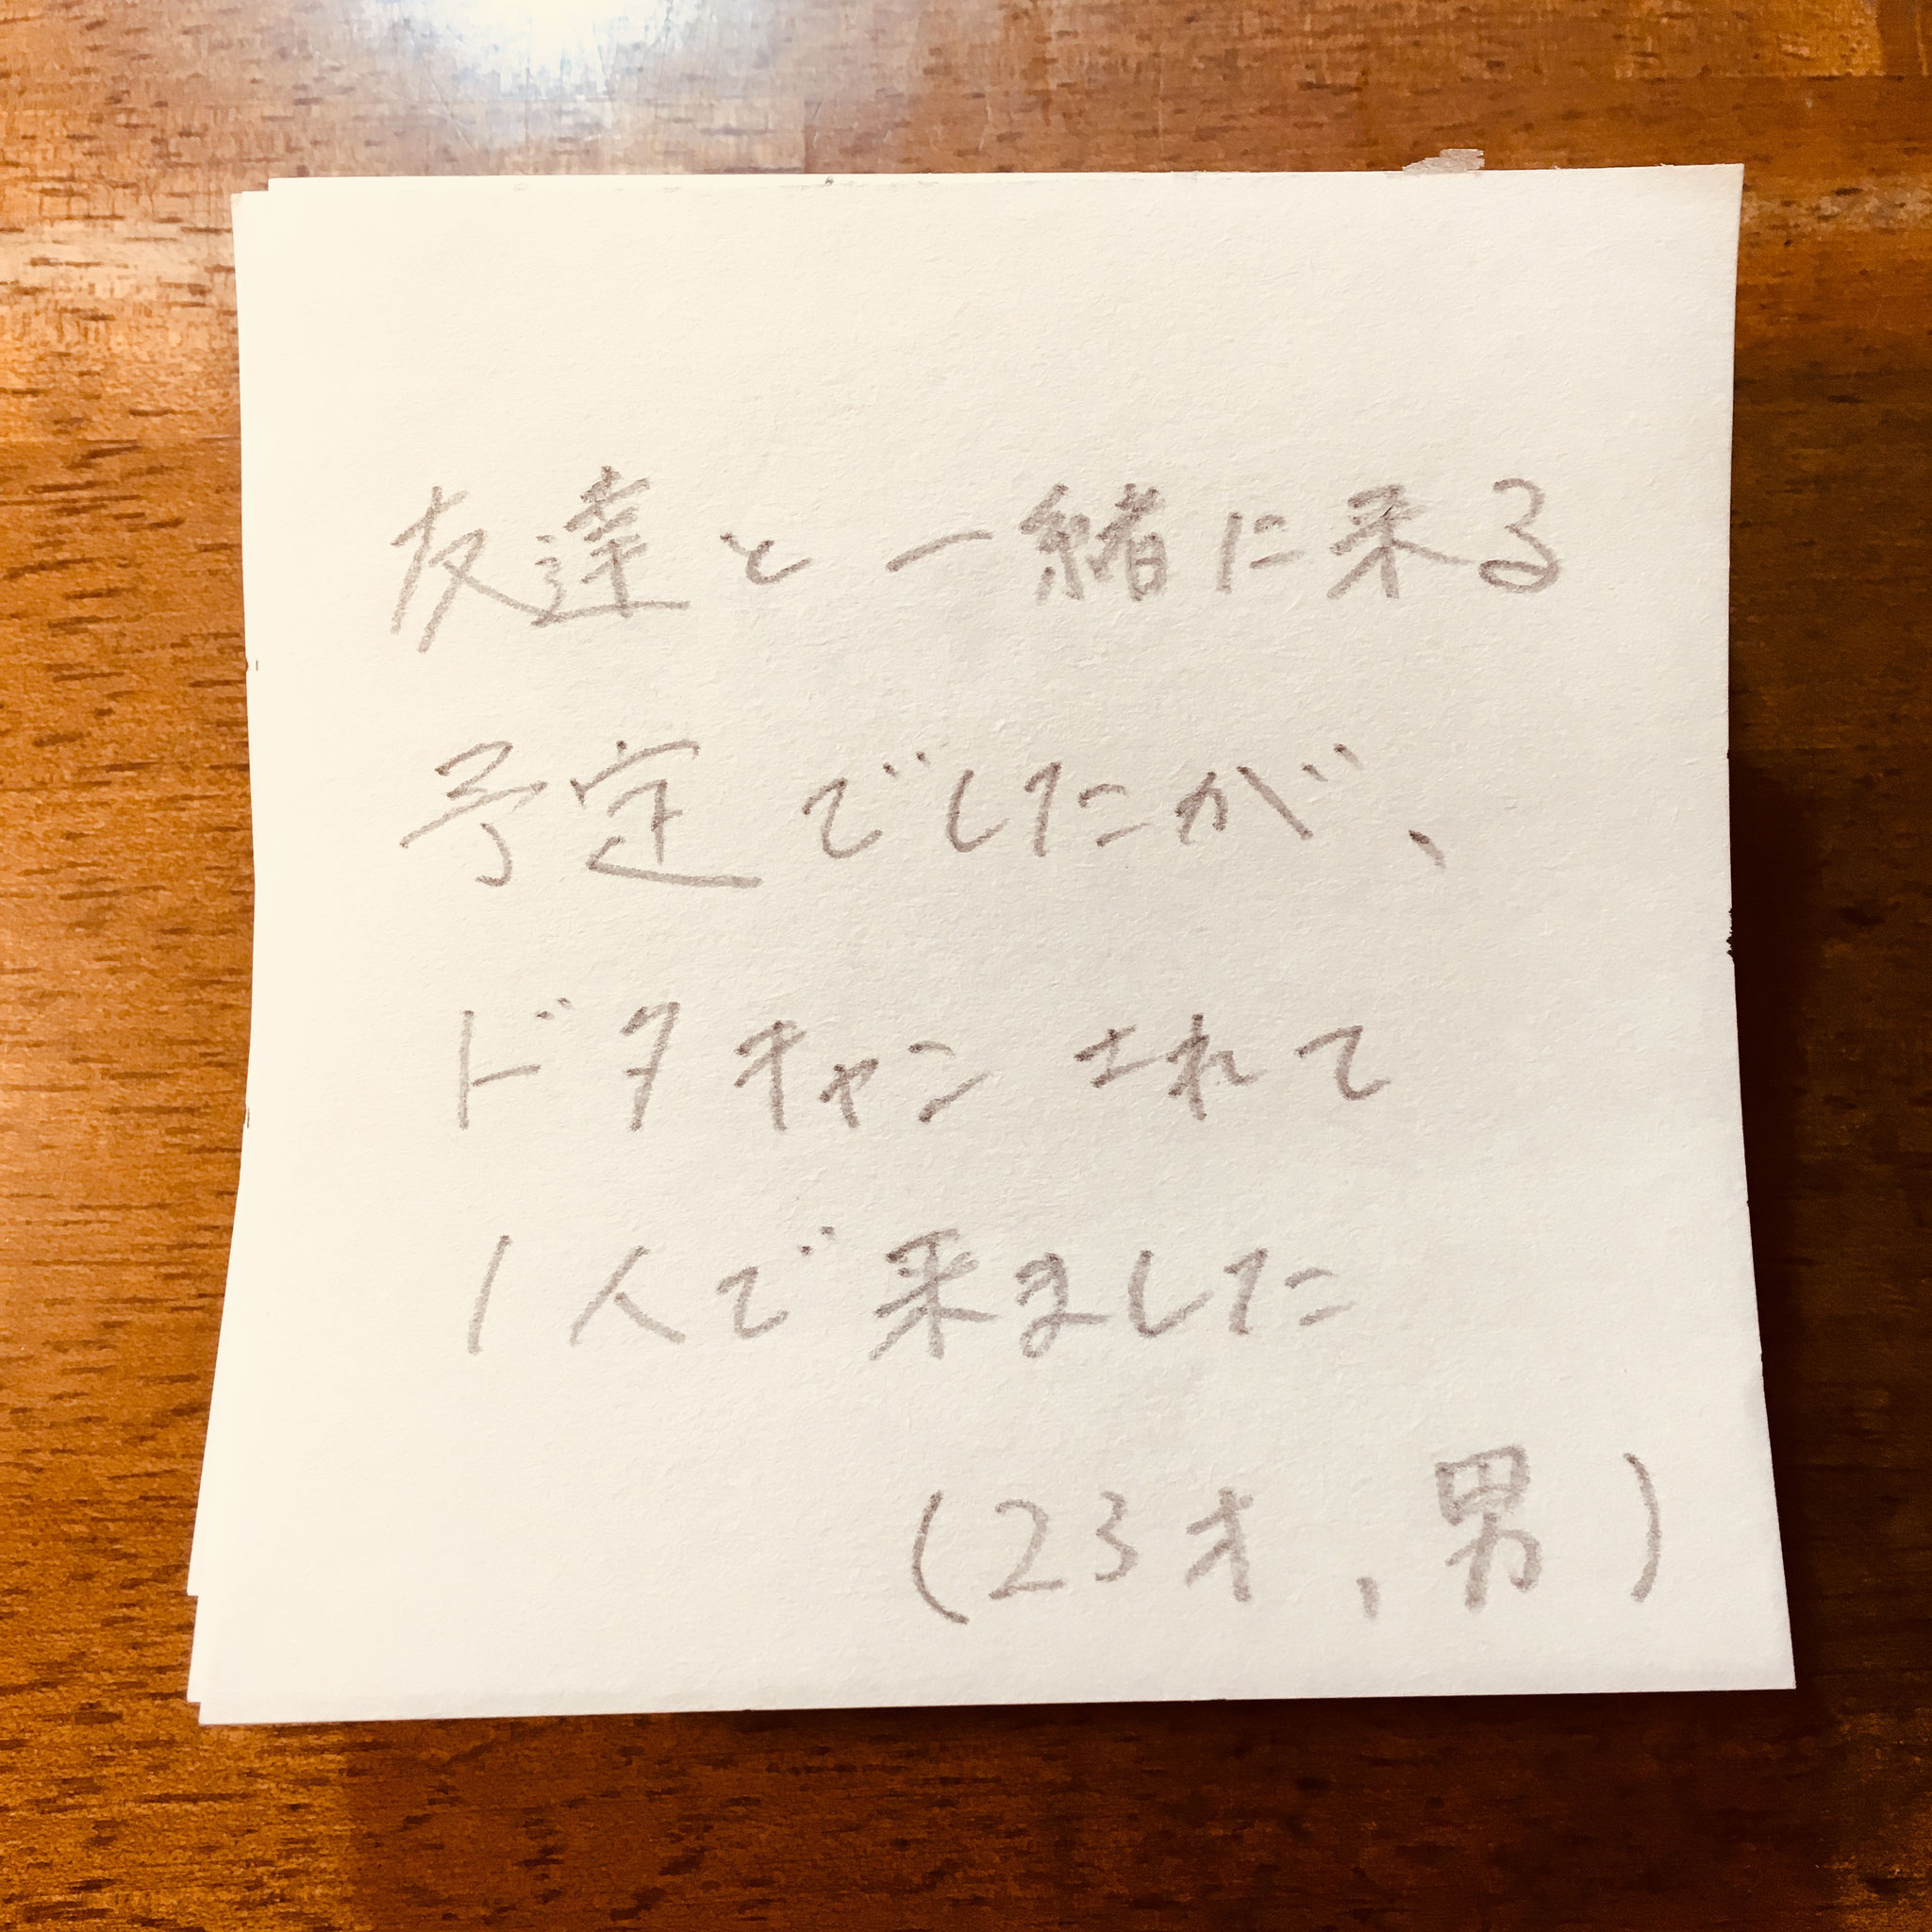 友達と一緒に来る
予定でしたが、
ドタキャンされて
1人で来ました
(23才、男)